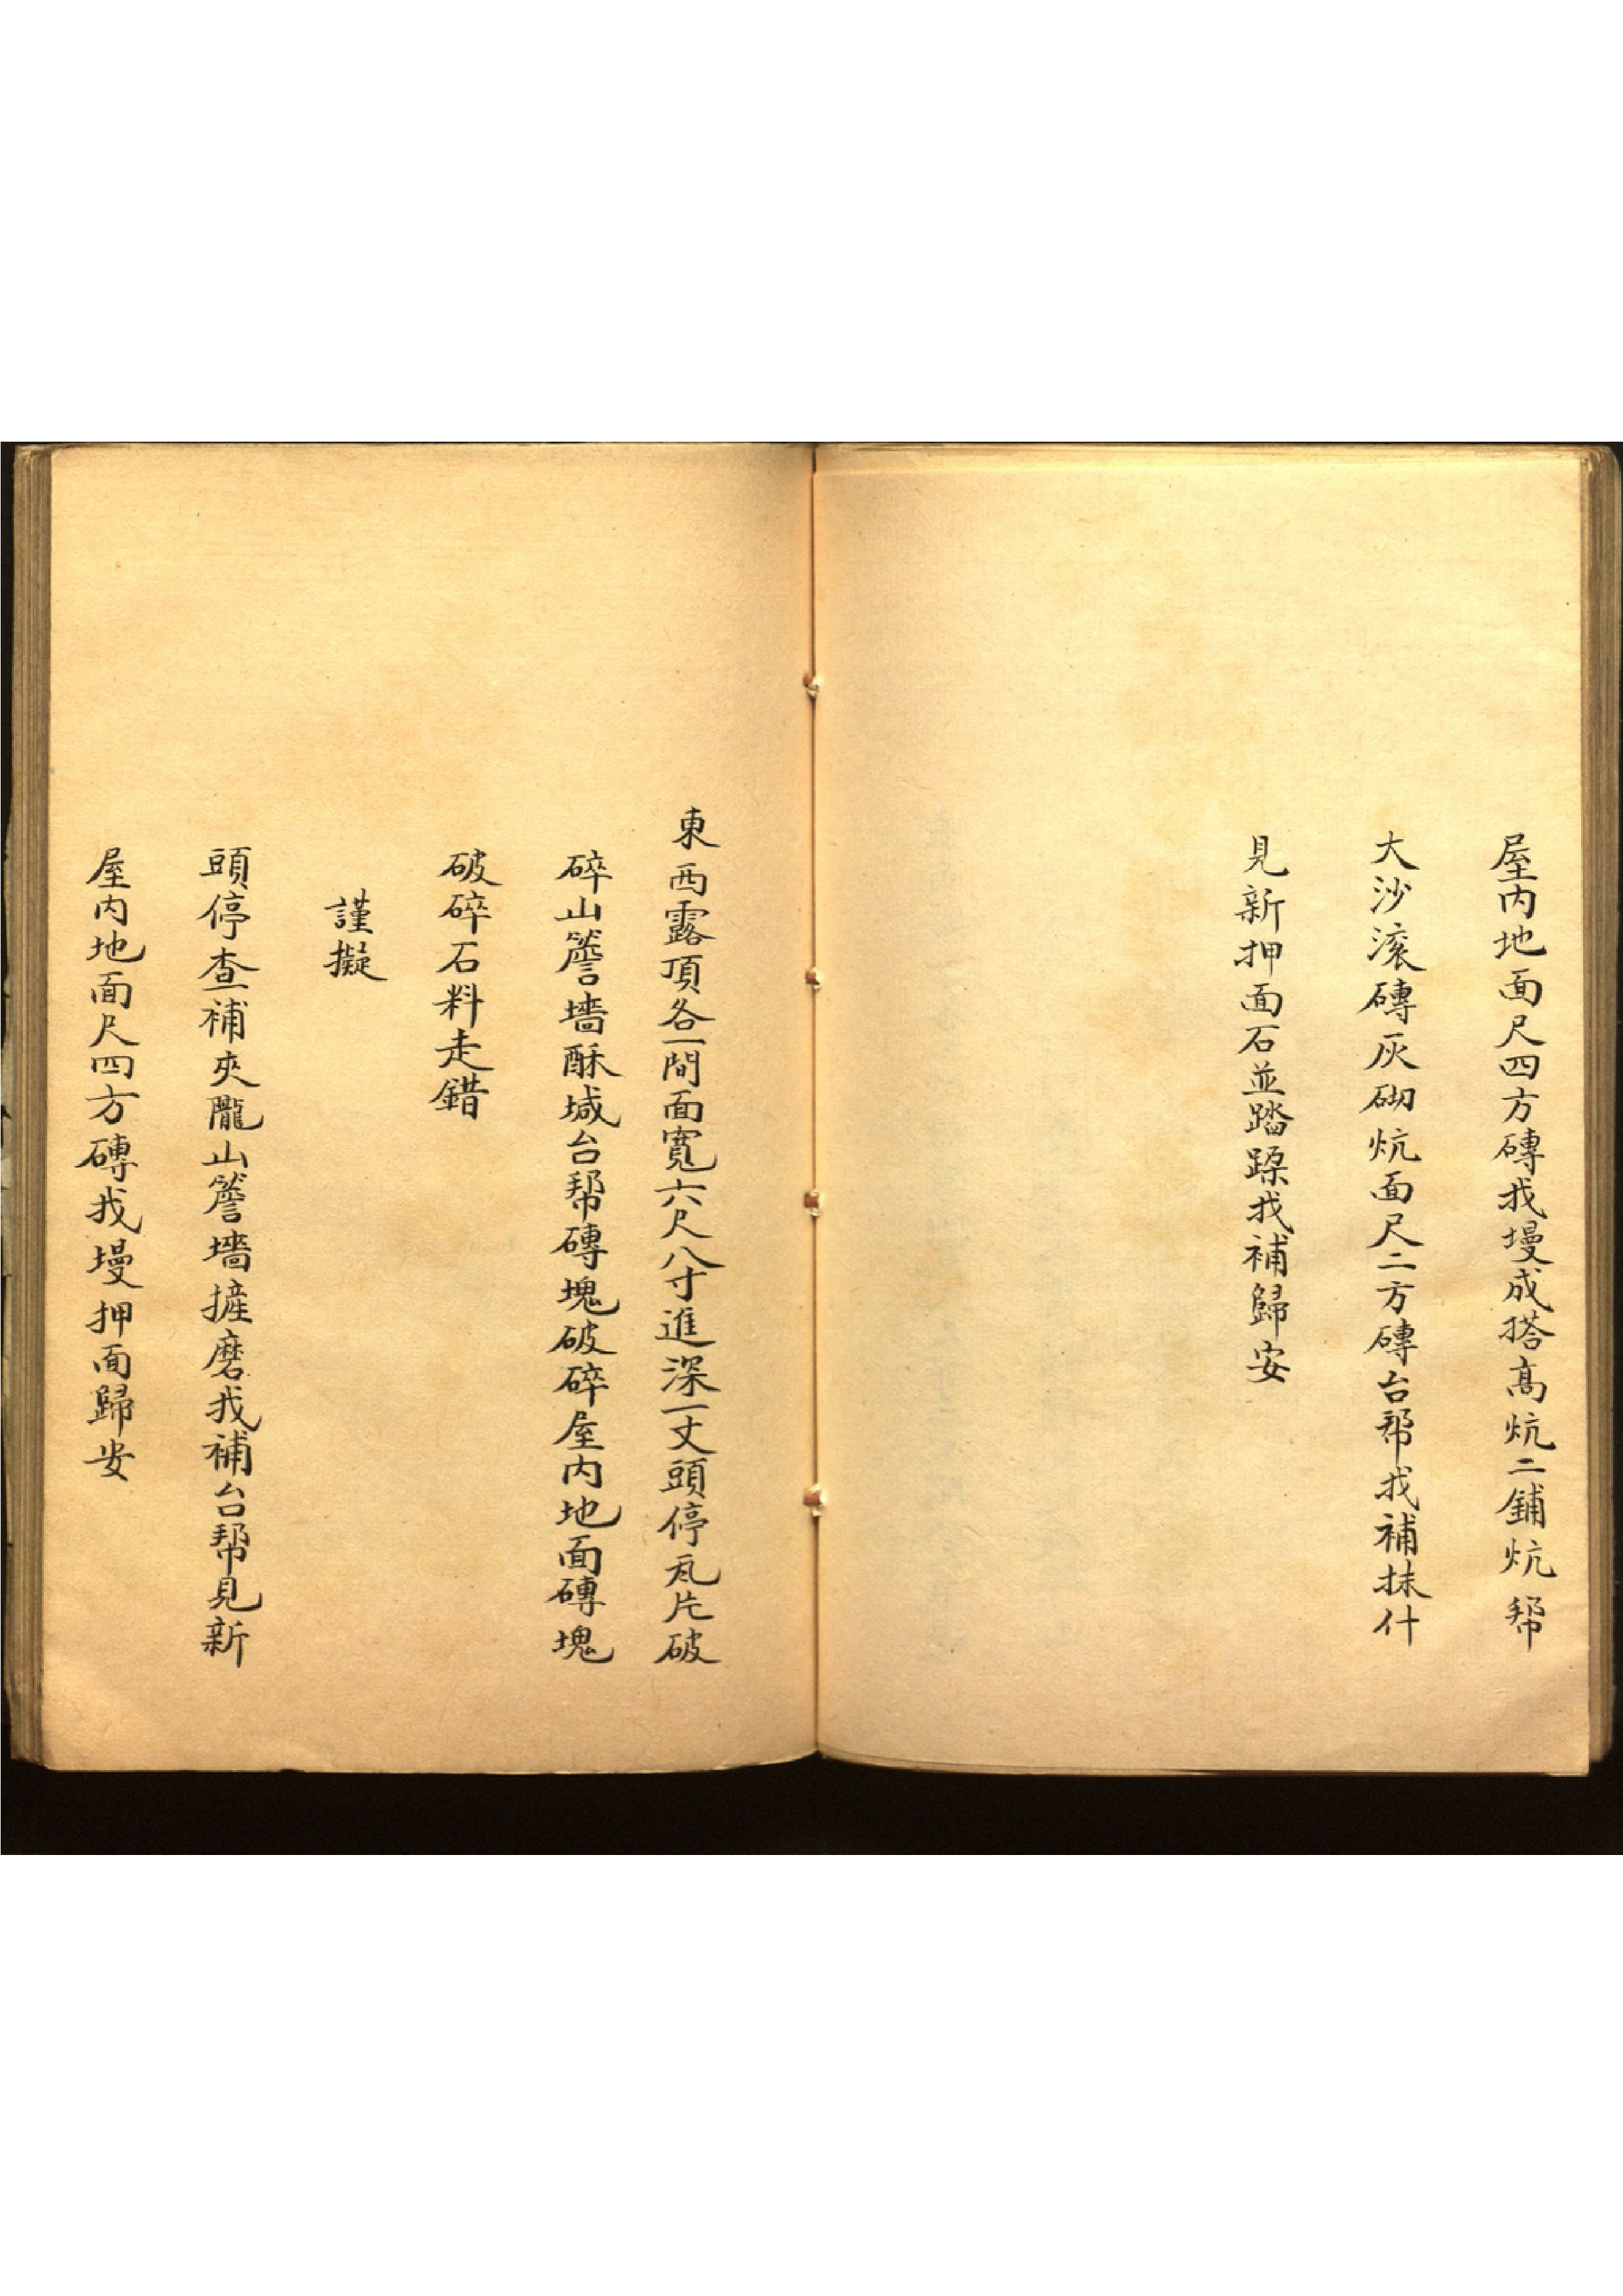 屋内地面尺四方磚找墁成搭高炕二鋪炕帮
大沙滚磚灰砌炕面尺二方磚台帮找補抹什
見新押面石並踏跺找補歸安
東西露頂各一間面寬六尺八寸進深一丈頭停瓦片破
碎山簷墻酥堿台帮磚塊破碎屋内地面磚塊
破碎石料走錯
謹擬
頭停查補夾隴山簷墻摌磨找補台帮見新
屋内地面尺四方磚找墁押面歸安